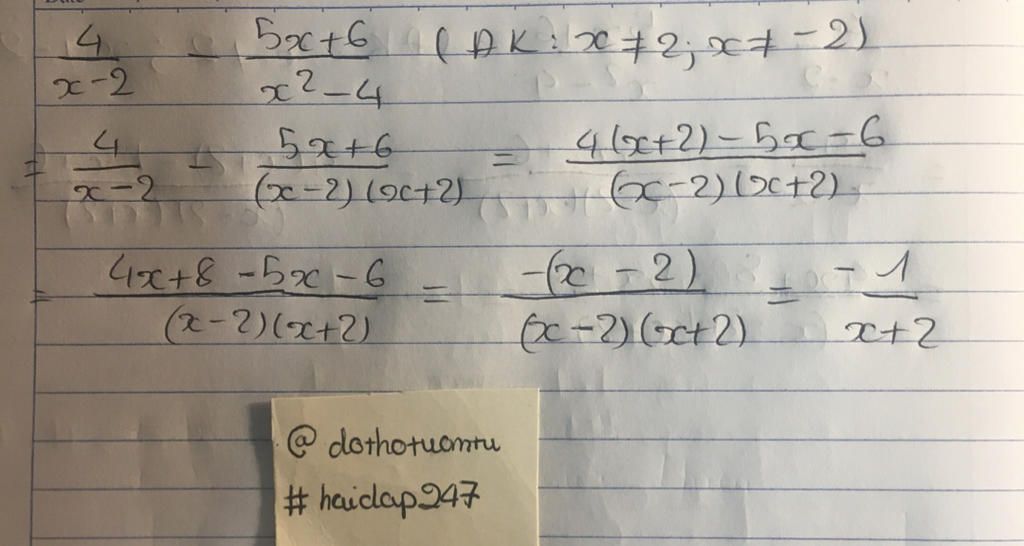 4/(x-2) - (5x+6)/(x²-4) (ĐK: x ≠ 2; x ≠ -2)
= 4/(x-2) - (5x+6)/((x-2)(x+2)) = (4(x+2)-5x-6)/((x-2)(x+2))
= (4x+8-5x-6)/((x-2)(x+2)) = (-(x-2))/((x-2)(x+2)) = (-1)/(x+2)
@ dothotuomtu
# haidap247